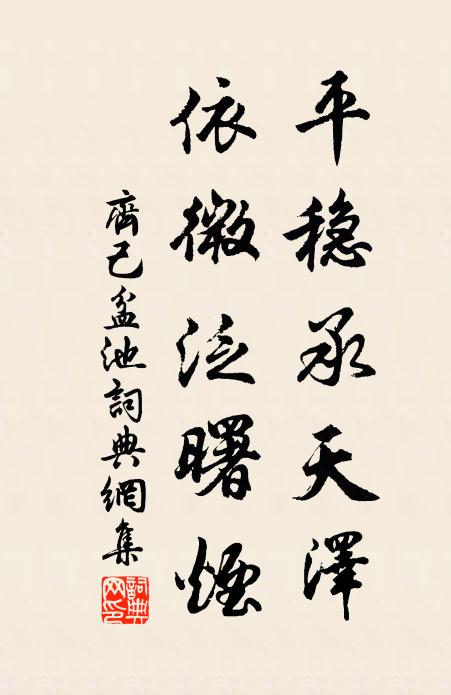 平稳承天澤
依微泛曙煙
齊己盆池詞典網集
詞典网印